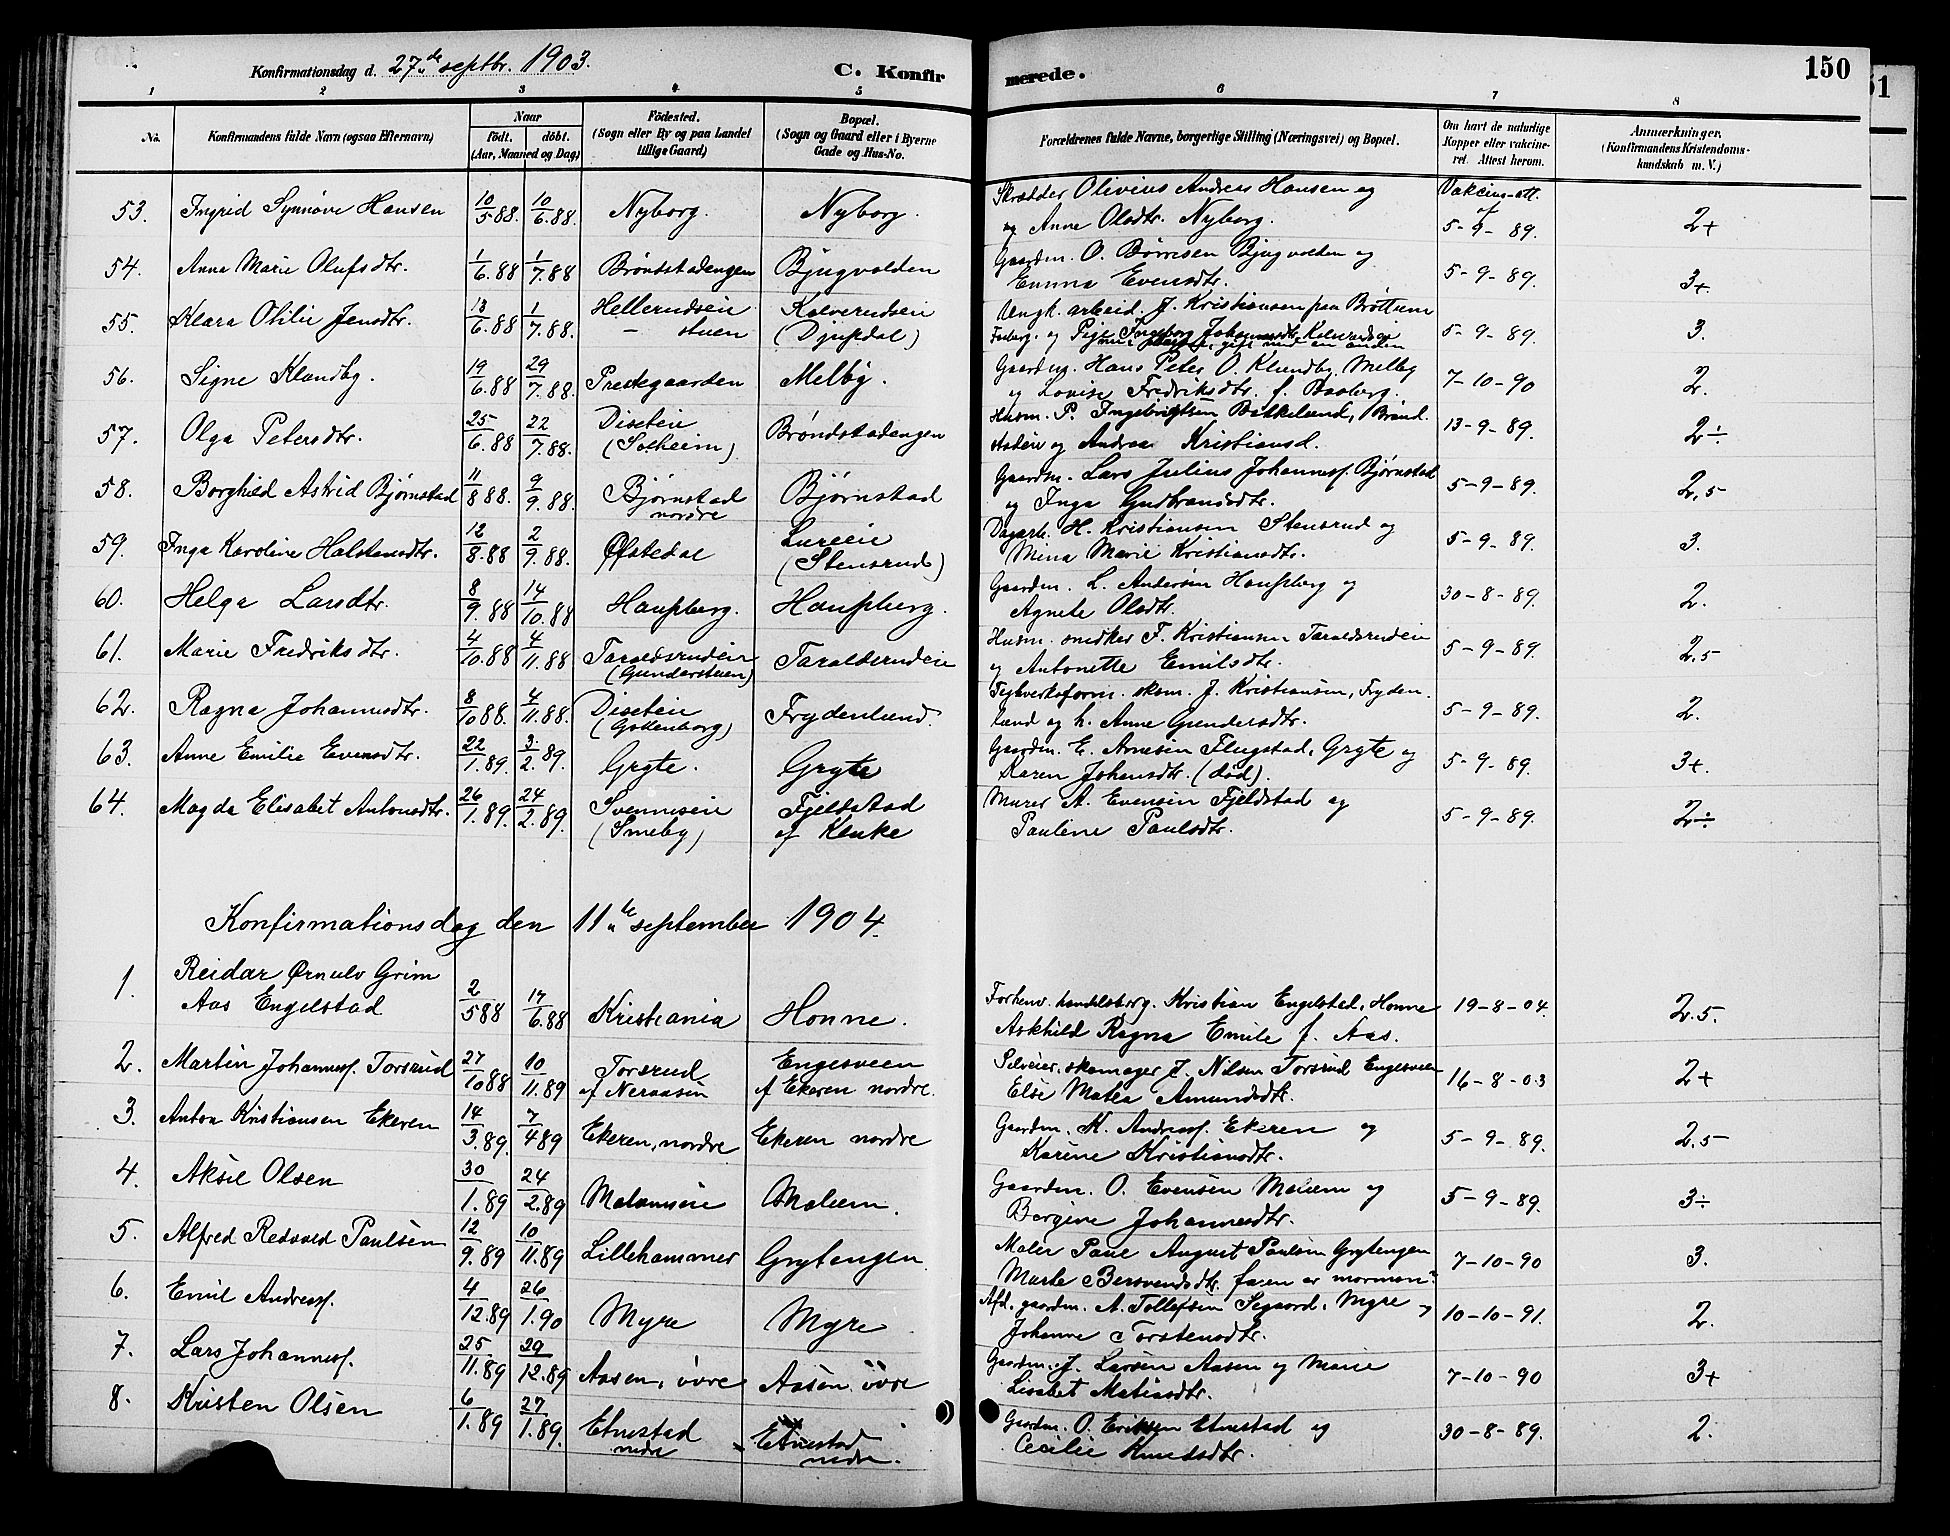 Konfirmationsdag d. 27de septbr. 1903. C. Konfir merede. 150
51
1 2 3 4 5 6 7 8
No. Konfirmandens fulde Navn (ogsaa Efternavn) Naar födt. döbt. (Aar, Maaned og Dag) Födested. (Sogn eller By og paa Landet tillige Gaard) Bopæl. (Sogn og Gaard eller i Byerne Gade og Hus-No. Forældrenes fulde Navne, borgerlige Stilling (Næringsvei) og Bopæl. Om havt de naturlige Kopper eller vakcineret. Attest herom. Anmærkninger. (Konfirmandens Kristendomskundskab m. V.)
53. Ingrid Synnøve Hansen 10/5 88. 10/6. 88. Nyborg. Nyborg. Skrædder Olivius Andreas Hansen og Vakcins-att.
og Anne Olsdtr. Nyborg. 5-9-89. 2+
54. Anna Marie Olufsdtr. 1/6. 88 1/7. 88 Brøndstadengen Bjugvolden Gaardm. O. Børresen Bjugvolden og
Emma Evensdtr. 5-9-89. 3+
55. Klara Otilie Jensdtr. 13/6. 88 1/7. 88. Hellerudseie Kalverudseie Ungk. arbeid. J. Kristiansen paa Brøttum
- stuen (Djupdal) Ingeborg Johannesdtr. 5-9-89. 3.
56. Signe Klundby. 19/6. 88 29/7. 88. Prestegaarden Melby. Gaardm. Hans Peter O. Klundby, Melby
og Lovise Fredriksdtr. f. Baaberg. 7-10-90 2.
57. Olga Petersdtr. 25/6. 88 22/7. 88. Diseteie Brøndstadengen Husm. P. Ingebrigtsen Birkelund, Brønd
(Solheim) stadeie og Andrea Kristiansd. 13-9-89. 2÷
58. Borghild Astrid Bjørnstad 11/8 88. 9/9. 88. Bjørnstad Bjørnstad Gaardm. Lars Julius Johannesf. Bjørnstad
nordre og Inga Gudbrandsdtr. 5-9-89. 2,5
59. Inga Karoline Halstensdtr. 12/8. 88 2/9. 88. Øfstedal Lureie Dagarb. H. Kristiansen Stensrud og
(Stensrud) Mina Marie Kristiansdtr. 5-9-89. 3.
60. Helga Larsdtr. 8/9. 88 14/10. 88 Haugsberg. Haugsberg. Gaardm. L. Andersen Haugsberg og
Agnete Olsdtr. 30-8-89. 2.
61. Marie Fredriksdtr. 4/10. 88 4/11. 88 Taraldsrudeie Taralderudeie Husm. snedker F. Kristiansen Taraldsrudeie
(Gunderstuen) og Antonette Emilsdtr. 5-9-89. 2.5
62. Ragna Johannesdtr. 8/10 88. 4/11. 88. Diseteie Frydenlund. Teglverksform. skom. J. Kristiansen, Fryden
(Gottenborg) lund og h. Anne Gundersdtr. 5-9-89. 2.
63. Anne Emilie Evensdtr. 22/1. 89. 3/2. 89. Gryte. Gryte Gaardm. E. Arnesen Flugstad, Gryte og
Karen Johansdtr. (död). 5-9-89. 3+.
64. Magda Elisabet Antonsdtr. 26/1. 89. 24/2. 89. Svenneseie Fjeldstad Murer A. Evensen Fjeldstad og
(Smeby) af Kluke Pauline Paulsdtr. 5-9-89. 2÷
Konfirmationsdag den 11te september 1904.
1. Reidar Ørnulv Grim
Aas Engelstad 2/5 88 17/6. 88 Kristiania Honne. Forhenv. handelsborg. Kristian Engelstad, Honne 19-8-04. 2.5.
Askhild Ragna Emilie f. Aas.
2. Martin Johannesf. Torsrud 27/10 88 10/11. 89 Torsrud Engesveen Selveier, skomager J. Nilsen Torsrud Engesveen
af Neraasen af Ekeren nordre. Else Matea Amundsdtr. 16-8-03 2+
3. Anton Kristiansen Ekeren 14/3. 89. 7/4 89 Ekeren, nordre Ekeren nordre Gaardm. K. Andreasf. Ekeren og
Karine Kristiansdtr. 5-9-89. 2.5
4. Aksel Olsen 30/1. 89 24/2. 89 Malumseie Malum. Gaardm. O. Evensen Malum og
Bergine Johannesdtr. 5-9-89. 3÷
5. Alfred Redvald Paulsen 12/9. 89 10/11. 89 Lillehammer Grytengen. Maler Paul August Paulsen Grytengen
Marte Bersvendsdtr. faren er mormon 7-10-90 3.
6. Emil Andreasf. 4/12. 89 26/1. 90 Myre Myre Afd. gaardm. A. Tollefsen Segaard, Myre og 10-10-91. 2.
Johanne Torstensdtr.
7. Lars Johannesf. 25/11. 89 29/12. 89 Aasen, övre Aasen övre Gaardm. J. Larsen Aasen og Marie
Lisabet Matiasdtr. 7-10-90 3+
8. Kristen Olsen 6/1. 89 27/1. 89. Etnestad Etnestad Gaardm. O. Eriksen Etnestad og
nedre nedre. Cecilie Knudsdtr. 30-8-89. 2.